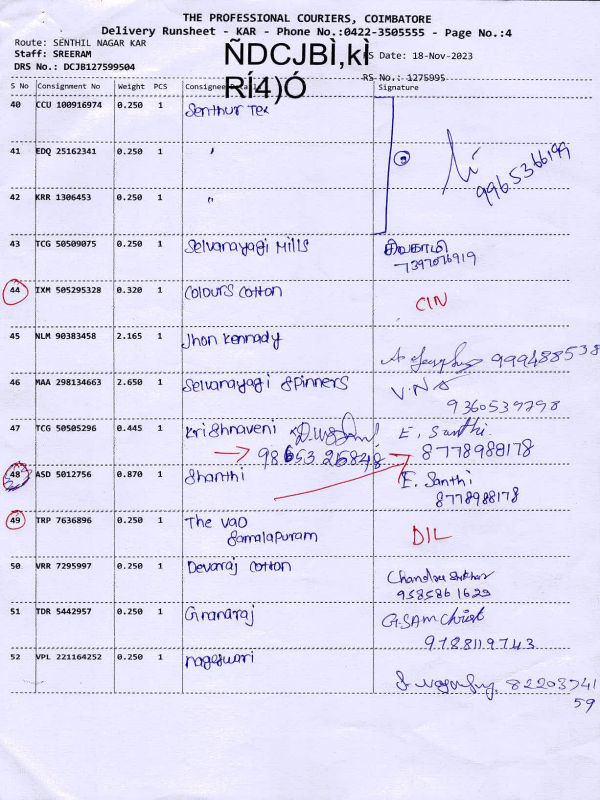 THE PROFESSIONAL COURIERS, COIMBATORE
Delivery Runsheet - KAR - Phone No.:0422-3505555 - Page No.:4
Route: SENTHIL NAGAR KAR
Staff: SREERAM
RS Date: 18-Nov-2023
DRS No.: DCJB127599504
ÑDCJBÌ,kÌ
RÍ4)Ó
RS No.: 1275995
S No Consignment No Weight PCS Consignee Detail Signature
40 CCU 100916974 0.250 1 Senthur Tex
41 EDQ 25162341 0.250 1 "
9965366199
42 KRR 1306453 0.250 1 "
43 TCG 50509075 0.250 1 Selvanayagi Mills சிவகாமி
7397076919
44 IXM 505295328 0.320 1 Colours Cotton CIN
45 NLM 90383458 2.165 1 Jhon Kennady 999488538
46 MAA 298134663 2.650 1 Selvanayagi Spinners V.NA
9360539298
47 TCG 50505296 0.445 1 Krishnaveni E. Santhi
8778988178
48 ASD 5012756 0.870 1 Shanthi E. Santhi
8778988178
49 TRP 7636896 0.250 1 The VAO DIL
Samalapuram
50 VRR 7295997 0.250 1 Devaraj Cotton
9585861629
51 TDR 5442957 0.250 1 Gnanaraj G.SAM Christ
9788119743
52 VPL 221164252 0.250 1 nageswari 82203741
59